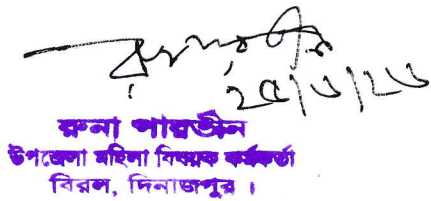 ২৫/৬/২৬
রুনা পারভীন
উপজেলা মহিলা বিষয়ক কর্মকর্তা
বিরল, দিনাজপুর ।